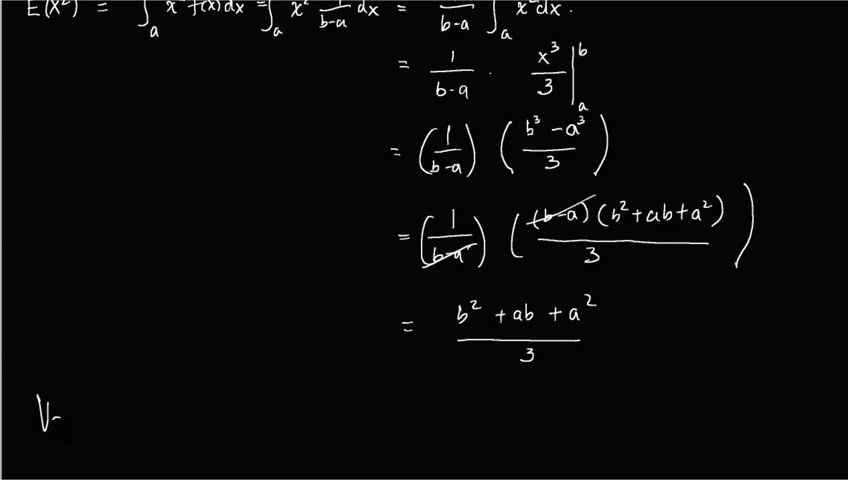 E(X²) = ∫ₐ x² f(x) dx = ∫ₐ x² 1/(b-a) dx = 1/(b-a) ∫ₐ x² dx.
= 1/(b-a) . x³/3 |ₐᵇ
= (1/(b-a)) ((b³ - a³)/3)
= (1/(b-a)) ((b-a)(b² + ab + a²)/3)
= (b² + ab + a²)/3
V